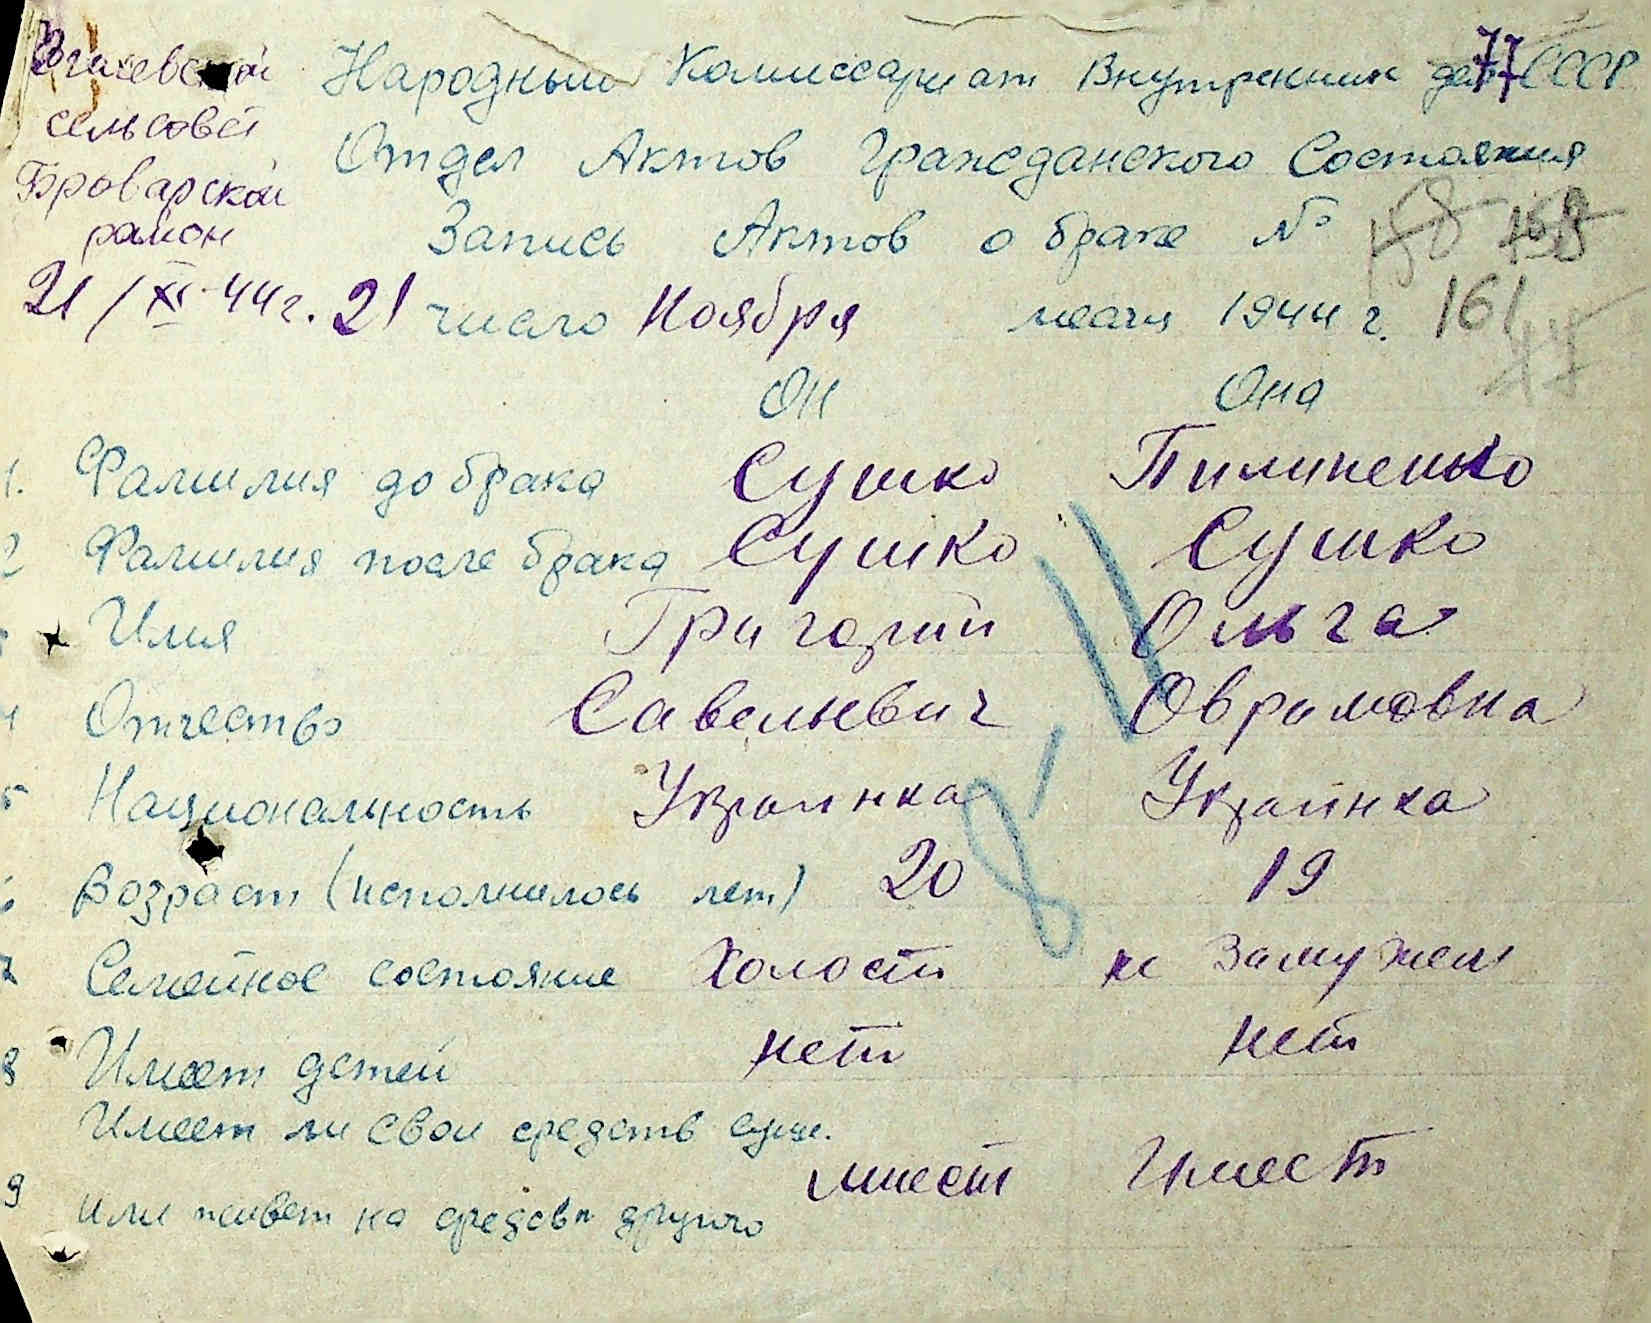 сельсовет
Броварской
район
21/XI-44г.
Народный Комиссариат Внутренних дел СССР
77
Отдел Актов Гражданского Состояния
Запись Актов о браке №
158 159
161
21 число Ноября месяца 1944 г.
Он Она
1. Фамилия до брака Сушко Пилипенко
2 Фамилия после брака Сушко Сушко
Имя Григорий Ольга
4 Отчество Савельевич Оврамовна
5 Национальность Украинка Украинка
6 Возраст (исполнилось лет) 20 19
7 Семейное состояние Холост не замужем
8 Имеет детей нет нет
Имеет ли свои средств сущ.
9 или живет на средсвп другого имеет Имеет